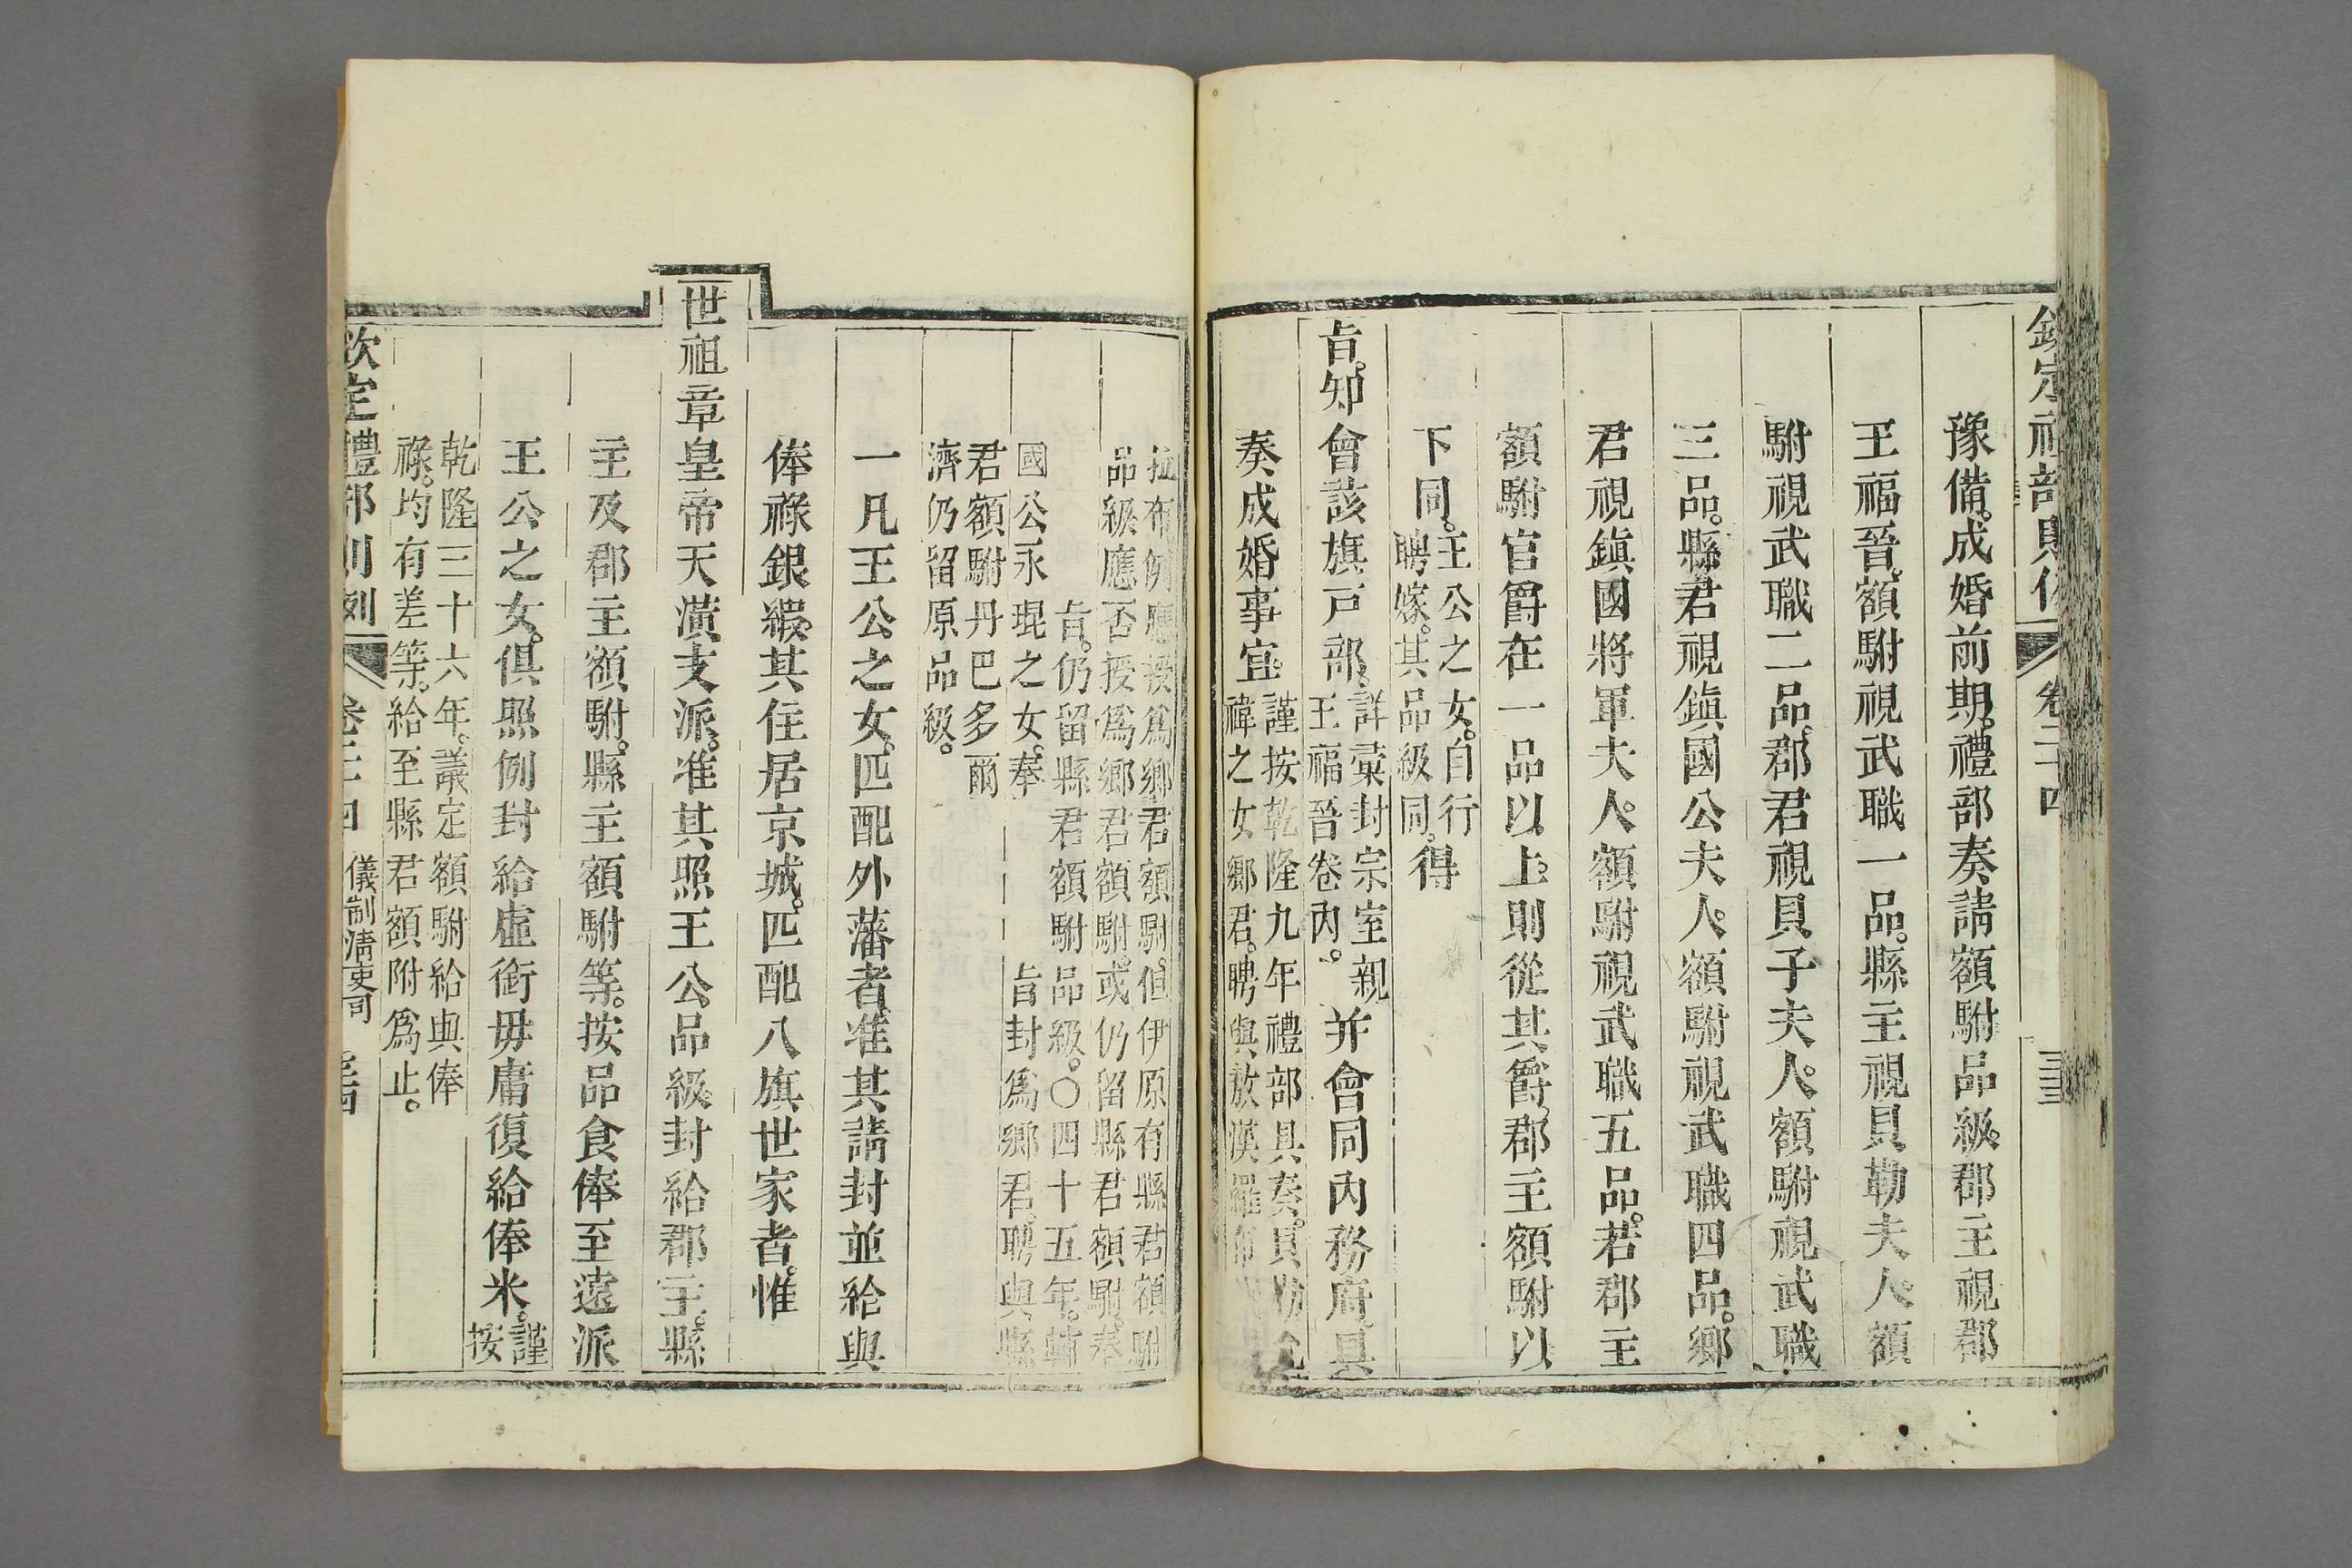 欽定禮部則例 卷二十四
豫備。成婚前期。禮部奏請額駙品級。郡主視郡
王福晉。額駙視武職一品。縣主視貝勒夫人。額
駙視武職二品。郡君視貝子夫人。額駙視武職
三品。縣君視鎮國公夫人。額駙視武職四品。鄉
君視鎮國將軍夫人。額駙視武職五品。若郡主
額駙官爵在一品以上。則從其爵。郡主額駙以
下同。王公之女。自行
聘嫁。其品級同。得
旨。知會該旗戸部。詳彙封宗室親
王福晉卷內。并會同內務府。具
奏成婚事宜。謹按乾隆九年禮部具奏。貝勒允
禕之女鄉君。聘與敖漢羅布
拉布例應授爲鄉君額駙。但伊原有縣君額駙
品級應否授爲鄉君額駙。或仍留縣君額駙。奉
旨。仍留縣君額駙品級。〇四十五年。輔
國公永琨之女。奉旨封爲鄉君。聘與縣
君額駙丹巴多爾
濟仍留原品級。
一凡王公之女。匹配外藩者。准其請封並給與
俸祿銀緞。其住居京城。匹配八旗世家者。惟
世祖章皇帝天潢支派。准其照王公品級封給郡主。縣
主及郡主額駙。縣主額駙等。按品食俸至遠派
王公之女。俱照例封給虛銜毋庸復給俸米。謹
按
乾隆三十六年。議定額駙給與俸
祿。均有差等。給至縣君額附爲止。
欽定禮部則例 卷二十四 儀制清吏司